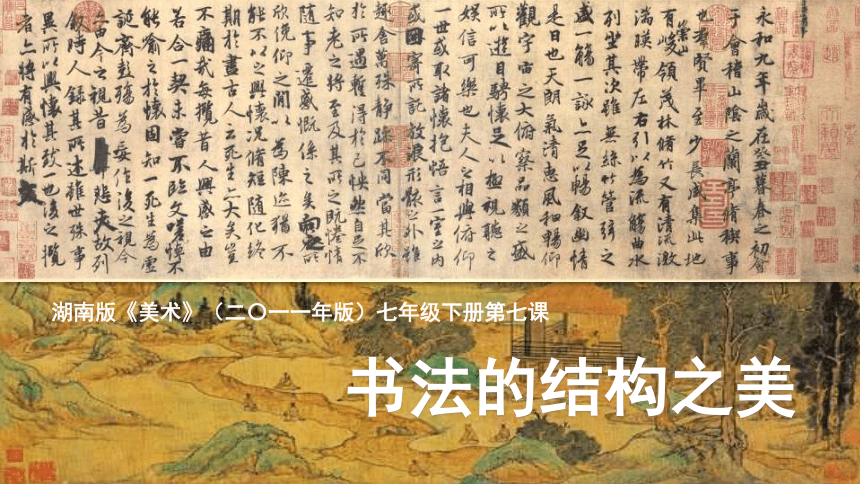 永和九年歲在癸丑暮春之初會
于會稽山陰之蘭亭脩稧事
也羣賢畢至少長咸集此地
有崇山峻領茂林脩竹又有清流激
湍暎帶左右引以為流觴曲水
列坐其次雖無絲竹管弦之
盛一觴一詠亦足以暢敘幽情
是日也天朗氣清惠風和暢仰
觀宇宙之大俯察品類之盛
所以遊目騁懷足以極視聽之
娛信可樂也夫人之相與俯仰
一世或取諸懷抱悟言一室之內
或因寄所託放浪形骸之外雖
趣舍萬殊靜躁不同當其欣
於所遇蹔得於己怏然自足不
知老之將至及其所之既惓情
隨事遷感慨係之矣向之所
欣俛仰之閒以為陳迹猶不
能不以之興懷況脩短隨化終
期於盡古人云死生亦大矣豈
不痛哉每攬昔人興感之由
若合一契未嘗不臨文嗟悼不
能喻之於懷固知一死生為虛
誕齊彭殤為妄作後之視今
亦由今之視昔悲夫故列
敘時人錄其所述雖世殊事
異所以興懷其致一也後之攬
者亦將有感於斯文
湖南版《美术》（二〇一一年版）七年级下册第七课
书法的结构之美